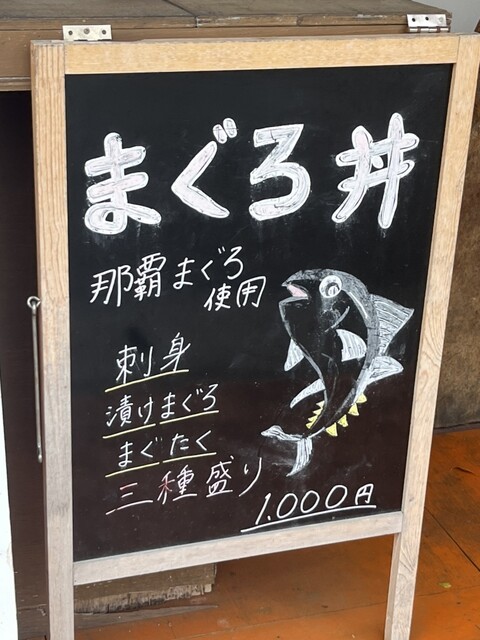 まぐろ丼
那覇まぐろ
使用
刺身
漬けまぐろ
まぐたく
三種盛り
1.000円